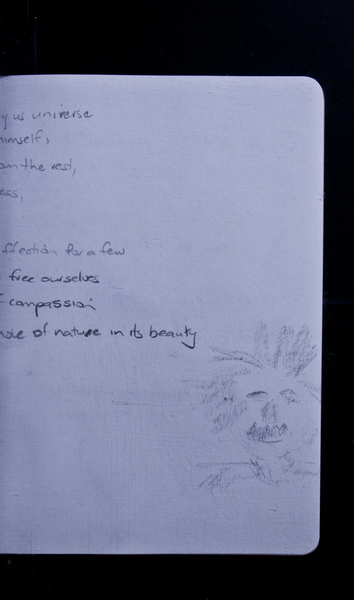 y us universe
himself,
om the rest,
ess,
ffection for a few
free ourselves
f compassion
hole of nature in its beauty